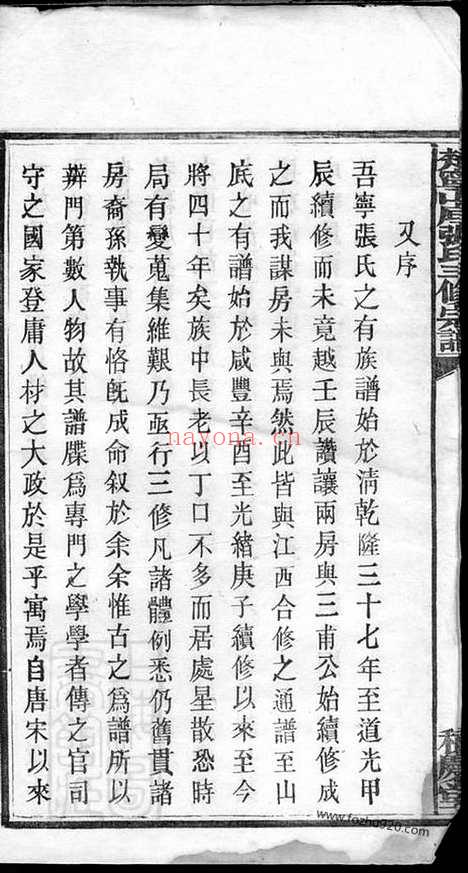 又序
吾寧張氏之有族譜始於清乾隆三十七年至道光甲
辰續修而未竟越壬辰讚讓兩房與三甫公始續修成
之而我謀房未與焉然此皆與江西合修之通譜至山
底之有譜始於咸豐辛酉至光緒庚子續修以來至今
將四十年矣族中長老以丁口不多而居處星散恐時
局有變蒐集維艱乃亟行三修凡諸體例悉仍舊貫諸
房裔孫執事有恪旣成命叙於余余惟古之爲譜所以
辨門第數人物故其譜牒爲專門之學學者傳之官司
守之國家登庸人材之大政於是乎寓焉自唐宋以來
山底張氏三修宗譜
nayona.cn
www.fozhu920.com